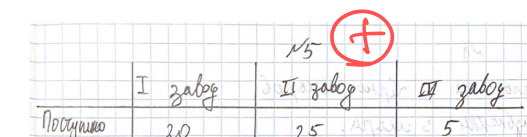 №5 +
I завод II завод III завод
Поступило 30 25 5